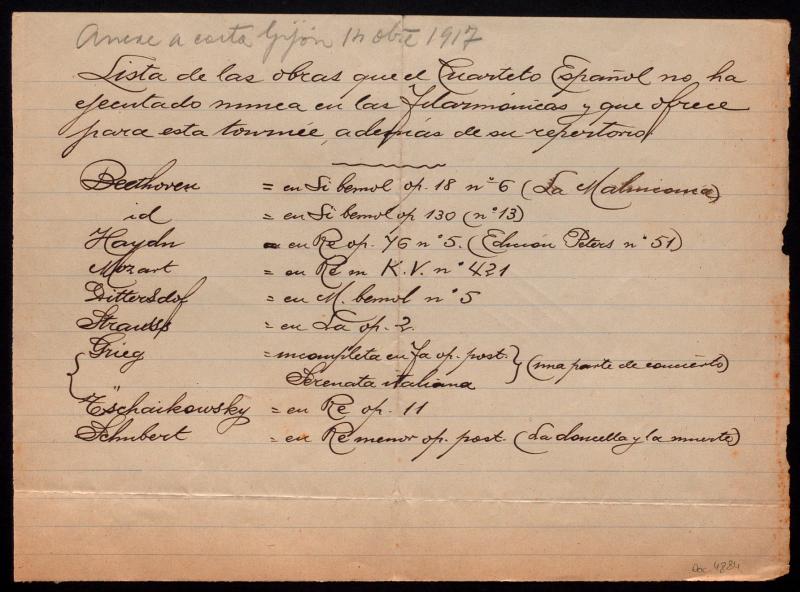 Anexe a carta Gijón 14 obre 1917
Lista de las obras que el Cuarteto Español no ha
ejecutado nunca en las Filarmónicas y que ofrece
para esta tournée, además de su repertorio.
Beethoven = en Si bemol op. 18 nº 6 (La Malinconia)
id = en Si bemol op 130 (nº 13)
Haydn = en Re op. 76 nº 5. (Edición Peters nº 51)
Mozart = en Re m K.V. nº 421
Dittersdof = en M. bemol nº 5
Strauss = en La op. 2.
Grieg = incompleta en Fa op. post. (una parte de concierto)
" Serenata italiana
Tschaikowsky = en Re op. 11
Schubert = en Re menor op. post. (La doncella y la muerte)
Doc 4884